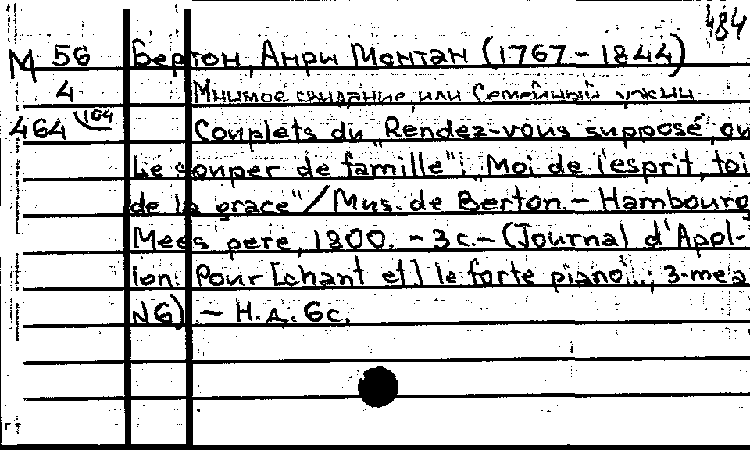 484
М 56 Бертон, Анри Монтан (1767-1844)
4 Мнимое свидание, или Семейный ужин
464 164 Couplets du "Rendez-vous supposé, ou
Le souper de famille": "Moi de l'esprit, toi
de la grace" / Mus. de Berton. - Hambourg
Mees pere, 1800. - 3 с. - (Journal d'Apol-
lon: Pour [chant et] le forte piano...; 3-me a
N6) - Н.д. 6с.